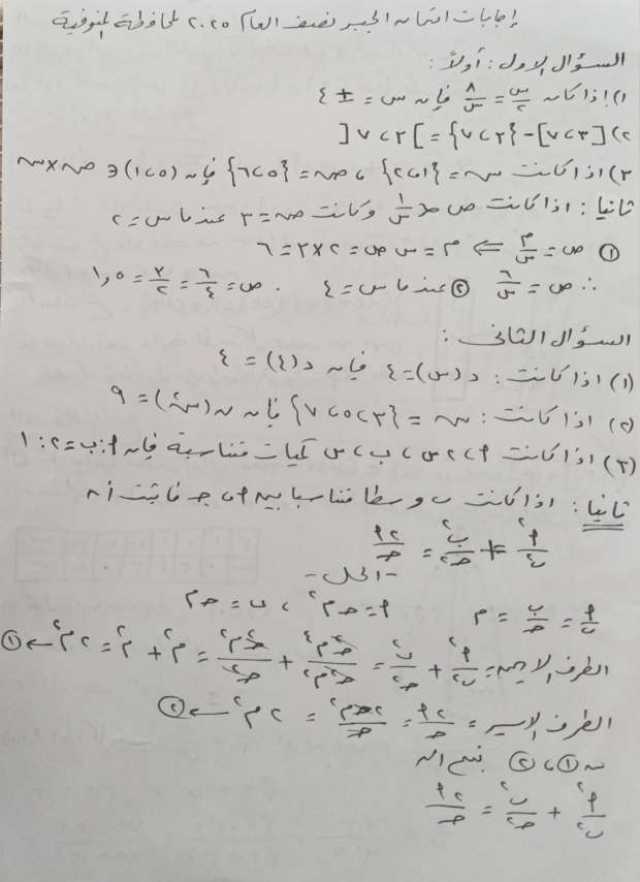 إجابات امتحان الجبر نصف العام ٢٠٢٥ لمحافظة المنوفية
السؤال الاول : أولاً :
١) إذا كان س/٢ = ٨/س فإن س = ± ٤
٢) [٣ ، ٧] - {٣ ، ٧} = ]٣ ، ٧[
٣) اذا كانت س = {١ ، ٢} ، ص = {٥ ، ٦} فإن (١ ، ٥) ∈ س × ص
ثانيا : اذا كانت ص ∝ ١/س وكانت ص = ٣ عندما س = ٢
① ص = م/س ⇐ م = س ص = ٢ × ٣ = ٦
∴ ص = ٦/س ② عندما س = ٤ . ص = ٦/٤ = ٣/٢ = ١,٥
السؤال الثانى :
(١) اذا كانت : د(س) = ٤ فإن د(٤) = ٤
(٢) اذا كانت : س = {٣ ، ٥ ، ٧} فإن ن(س²) = ٩
(٣) اذا كانت أ ، ٢س ، ب ، س كميات متناسبة فإن أ : ب = ٢ : ١
ثانيا : اذا كانت ب وسطا متناسبا بين أ ، جـ فاثبت أن
أ²/ب² + ب²/جـ² = ٢أ/جـ
- الحل -
أ/ب = ب/جـ = م أ = جـ م² ، ب = جـ م
الطرف الايمن = أ²/ب² + ب²/جـ² = جـ²م⁴/جـ²م² + جـ²م²/جـ² = م² + م² = ٢م² ← ①
الطرف الايسر = ٢أ/جـ = ٢جـم²/جـ = ٢م² ← ②
من ① ، ② ينتج أن
أ²/ب² + ب²/جـ² = ٢أ/جـ